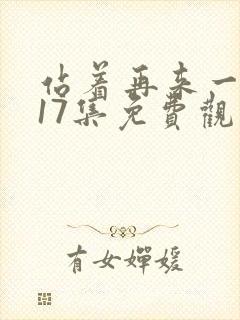 佔着再来一
17集免費觀
有女嬋媛